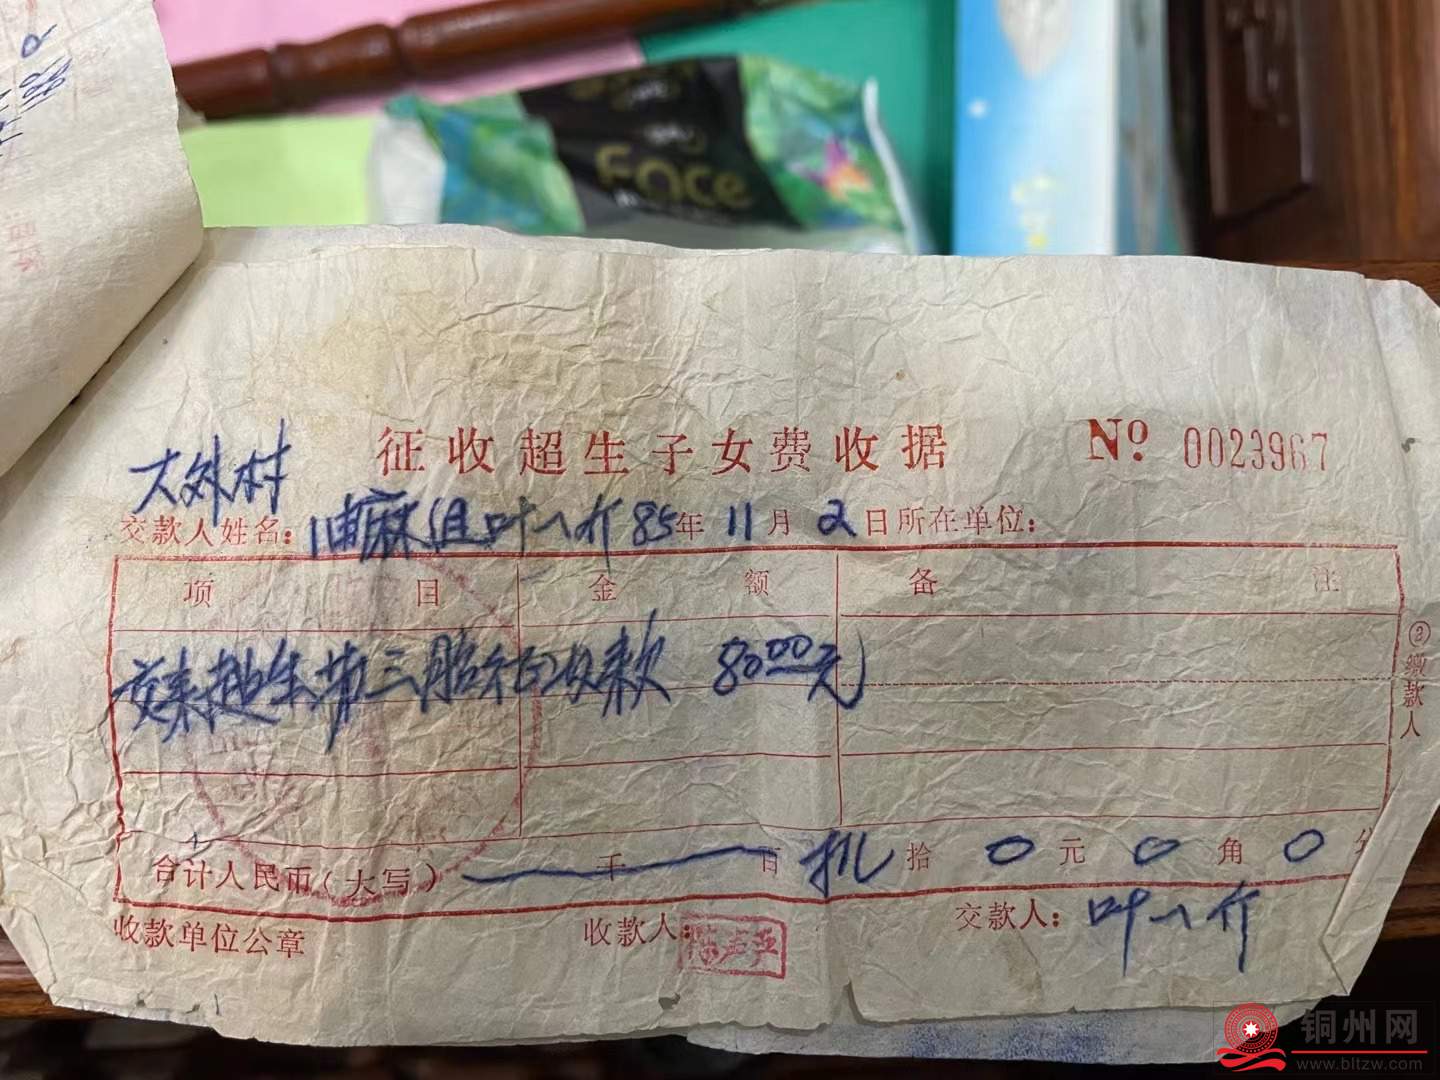 Face
征收超生子女费收据 № 0023967
大外村
交款人姓名：油麻组叶一介 85年 11月 2日所在单位：
项目 金额 备注
超生第三胎 款 80.00元
②缴款人
合计人民币（大写） 千 百 捌 拾 0 元 0 角 0 分
收款单位公章 收款人： 交款人：叶一介
铜州网
www.bltzw.com